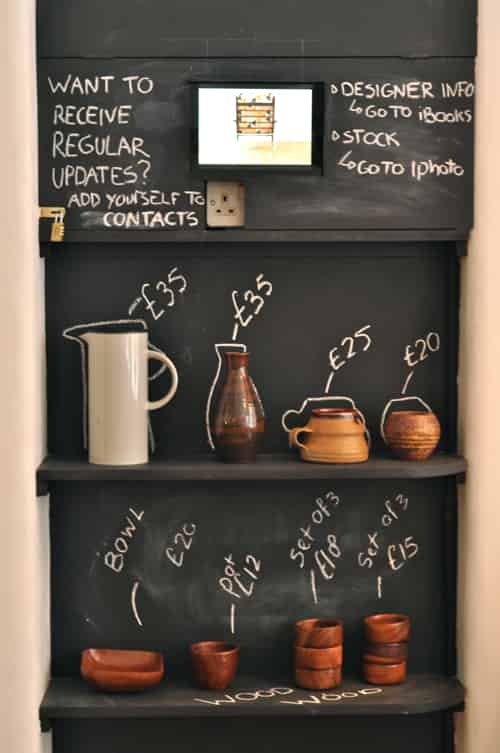 WANT TO
RECEIVE
REGULAR
UPDATES?
ADD YOURSELF TO
CONTACTS
DESIGNER INFO
GO TO iBooks
STOCK
GO TO Iphoto
£35
£35
£25
£20
BOWL
£20
Pot
£12
Set of 3
£18
Set of 3
£15
WOOD
WOOD